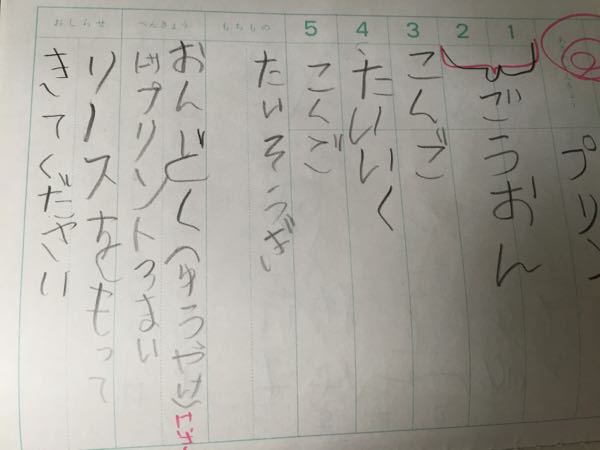 プリン
1
2
ごうおん
3
こくご
4
たいいく
5
こくご
もちもの
たいそうぎ
べんきょう
おんどく(ゆうやけ)
プリント まい
おしらせ
リースをもって
きてください